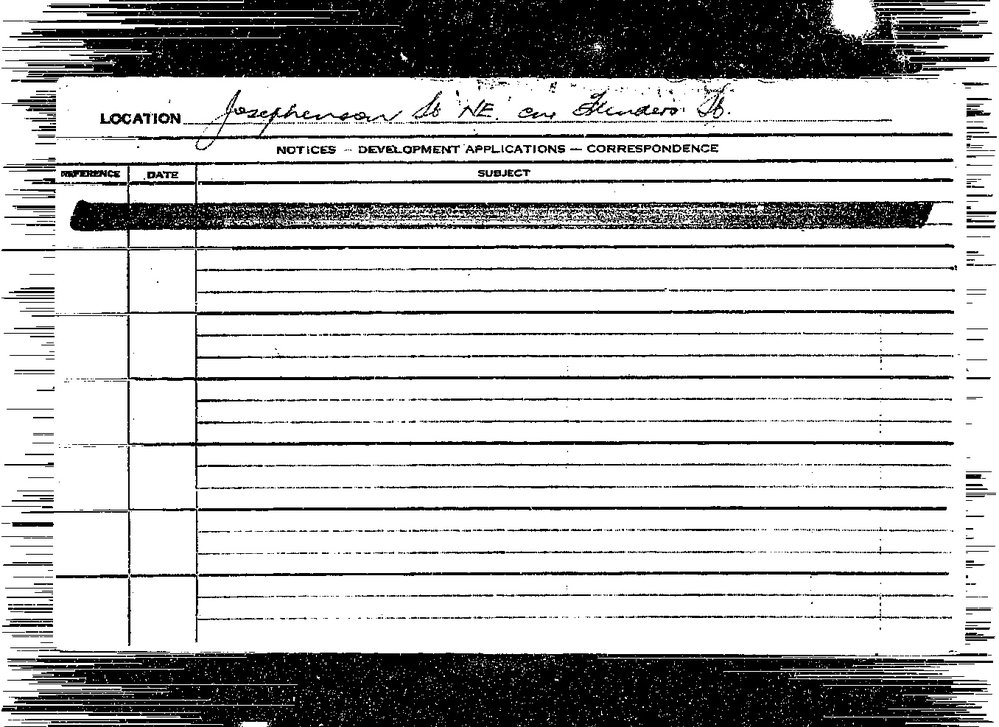 LOCATION Josephenson St NE. cnr Flinders St.
NOTICES – DEVELOPMENT APPLICATIONS – CORRESPONDENCE
REFERENCE DATE SUBJECT